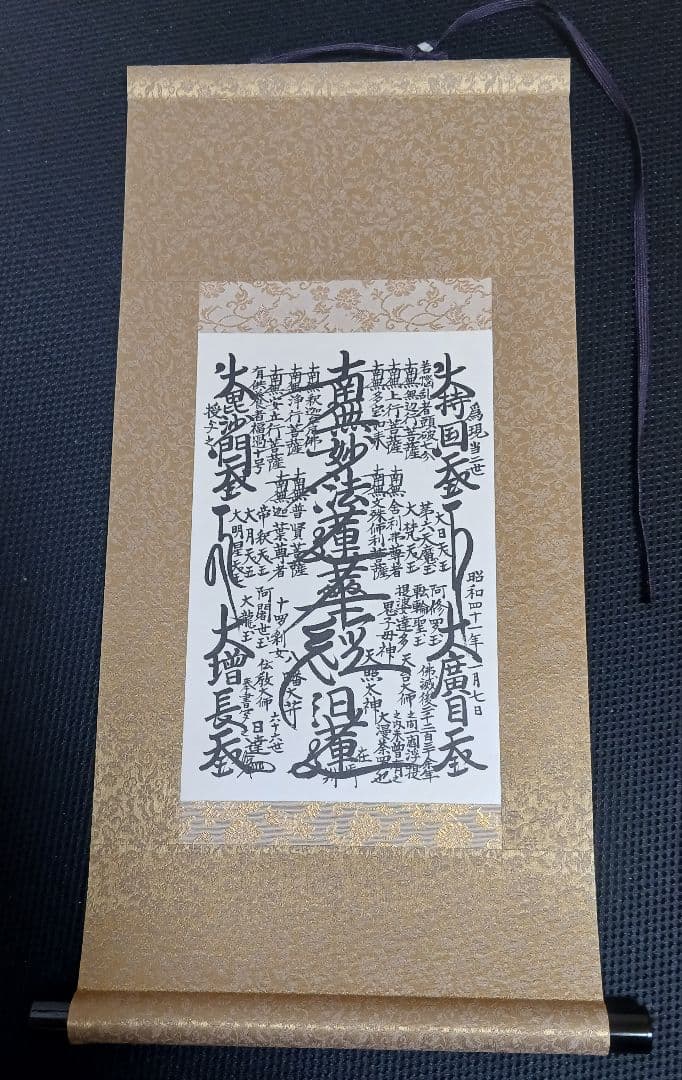 為現当二世
大持国天王
大廣目天王
昭和四十一年一月七日
若悩乱者頭破七分
南無無辺行菩薩
南無上行菩薩
南無多宝如来
南無妙法蓮華経 日蓮
在御判
南無釈迦牟尼佛
南無浄行菩薩
南無安立行菩薩
有供養者福過十号
大毘沙門天王
授与之
大増長天王
南無舎利弗尊者
南無文殊師利菩薩
南無普賢菩薩
南無迦葉尊者
大日天王
第六天魔王
大梵天王
帝釈天王
大月天王
大明星天王
阿修羅王
転輪聖王
提婆達多
鬼子母神
十羅刹女
阿闍世王
大龍王
天台大師
天照太神
八幡大菩薩
伝教大師
佛滅後二千二百三十余年
之間一閻浮提
之内未曾有
大漫荼羅也
六十六世
日達
奉書写之